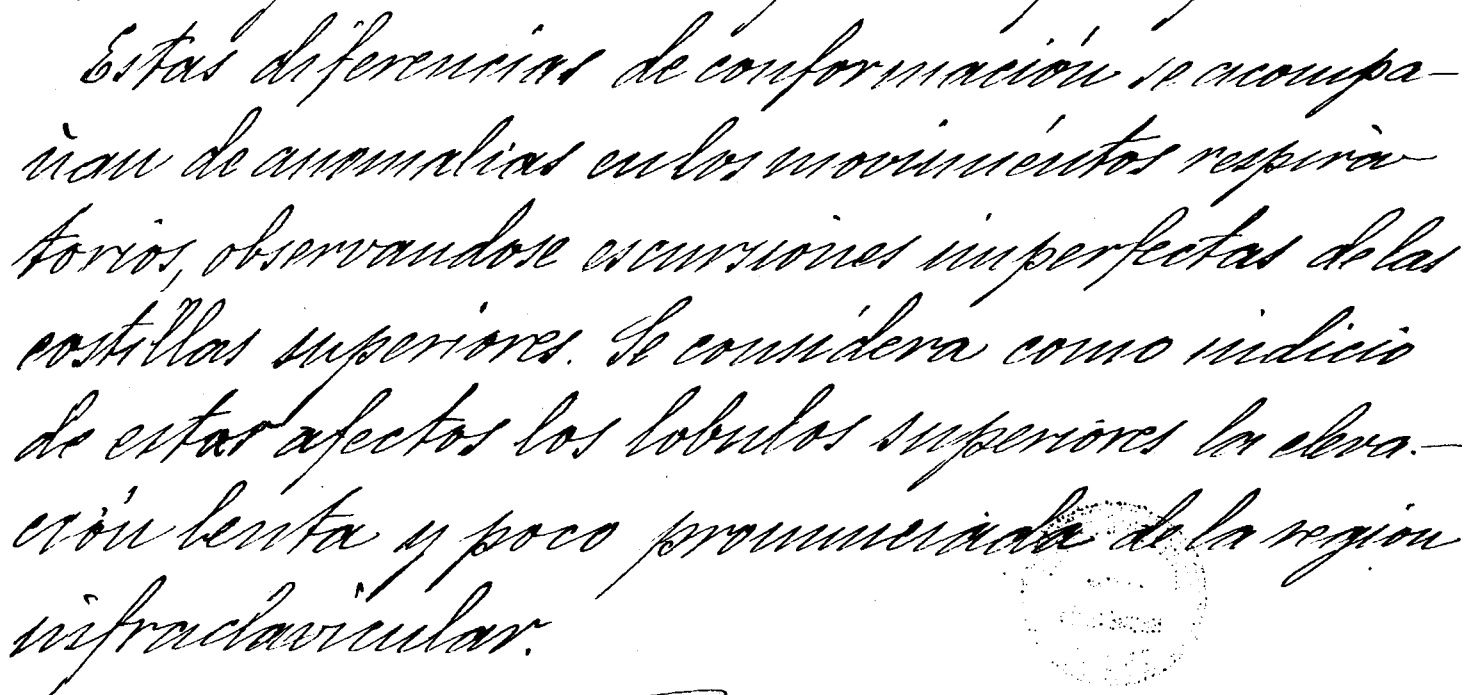 Estas diferencias de conformación se acompa-
ñan de anomalias en los movimientos respira-
torios, observandose escursiones imperfectas de las
costillas superiores. Se considera como indicio
de estar afectos los lobulos superiores la eleva-
ción lenta y poco pronunciada de la region
infraclavicular.